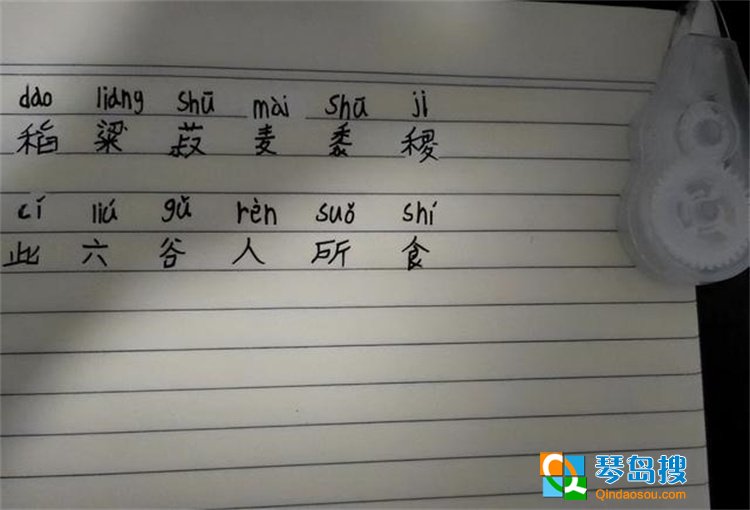 dào liáng shū mài shū jì
稻 粱 菽 麦 黍 稷
cí liú gǔ rèn suǒ shí
此 六 谷 人 所 食
琴岛搜
Qindaosou.com